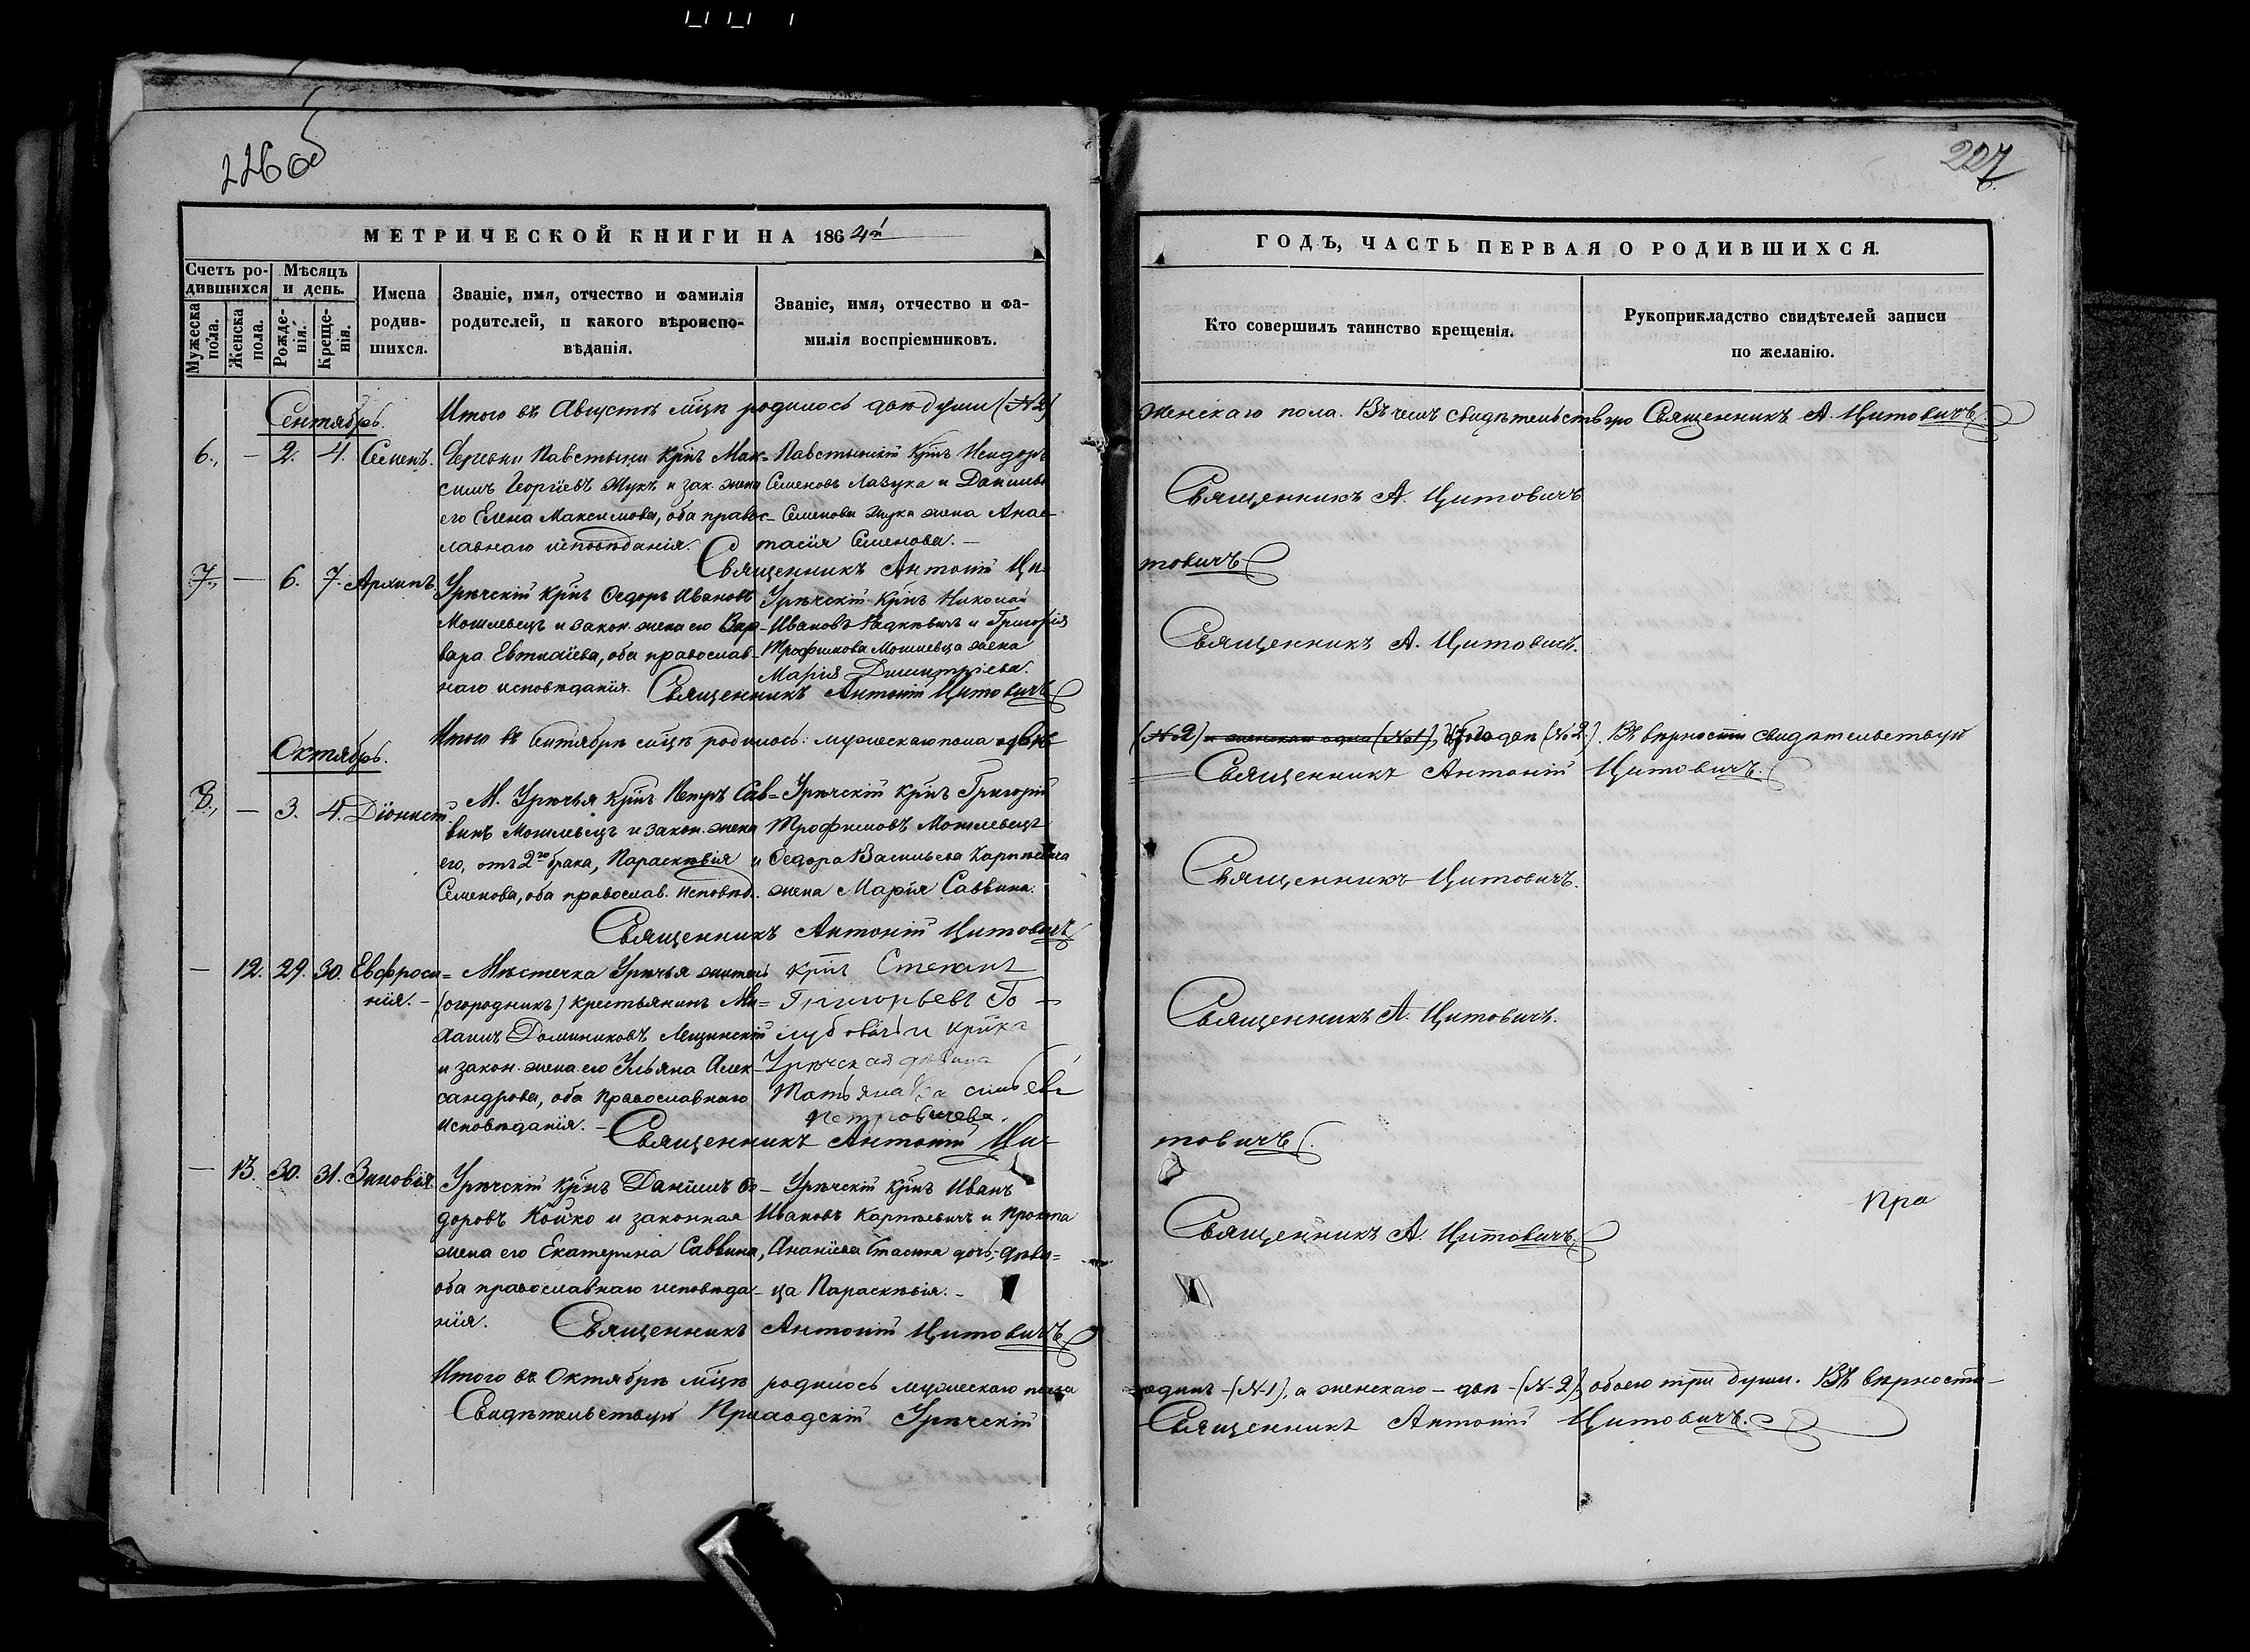 226 об
227
МЕТРИЧЕСКОЙ КНИГИ НА 1864й
ГОДЪ, ЧАСТЬ ПЕРВАЯ О РОДИВШИХСЯ.
Счетъ родившихся
Мужеска пола.
Женска пола.
Мѣсяцъ и день.
Рожденія.
Крещенія.
Имена родившихся.
Званіе, имя, отчество и фамилія
родителей, и какого вѣроиспо-
вѣданія.
Званіе, имя, отчество и фа-
милія воспріемниковъ.
Кто совершилъ таинство крещенія.
Рукоприкладство свидѣтелей записи
по желанію.
Итого въ Августѣ мцѣ родилось двѣ души (№2)
женскаго пола. Въ чемъ свидѣтельствую Священникъ А. Цитовичъ
Сентябрь.
6., — 2. 4. Семенъ.
Деревни Павстыни крнъ Мак=
симъ Георгіевъ Жукъ и зак. жена
его Елена Максимова, оба правос-
лавнаго исповѣданія.
Павстынскій крнъ Исидоръ
Семеновъ Лазука и Даниила
Семенова Жука жена Анас-
тасія Семенова. —
Священникъ А. Цитовичъ
Священникъ Антоній Ци-
товичъ
7., — 6. 7. Архипъ
Урѣчскій крнъ Ѳедоръ Ивановъ
Мошлевецъ и закон. жена его Вар-
вара Евтихіева, оба православ-
наго исповѣданія.
Урѣчскій крнъ Николай
Ивановъ Радкевичъ и Григорія
Трофимова Мошлевца жена
Марія Димитріева.
Священникъ А. Цитовичъ.
Священникъ Антоній Цитовичъ
Итого въ Сентябрѣ мцѣ родилось: мужескаго пола двѣ
(№2) и женскаго одна (№1), обоего двѣ (№2). Въ вѣрности свидѣтельствую
Священникъ Антоній Цитовичъ.
Октябрь.
8., — 3. 4. Діонисій.
М. Урѣчья крнъ Петръ Сав=
винъ Мошлевецъ и закон. жена
его, отъ 2го брака, Параскевія
Семенова, оба православ. исповѣд.
Урѣчскій крнъ Григорій
Трофимовъ Мошлевецъ
и Ѳедора Васильева Карпѣевича
жена Марія Саввина.
Священникъ Цитовичъ.
Священникъ Антоній Цитовичъ
— 12. 29. 30. Евфроси=
нія. —
Мѣстечка Урѣчья житель
(огородникъ) крестьянинъ Ми=
хаилъ Доминиковъ Лещинскій
и закон. жена его Ульяна Алек-
сандрова, оба православнаго
исповѣданія. —
крнъ Степанъ
Григорьевъ Го-
лубовичъ и крнка
Урѣчская дѣвица
Татьяна Васильева
Петровичева.
Священникъ А. Цитовичъ.
Священникъ Антоній Ци-
товичъ
— 13. 30. 31. Зиновія.
Урѣчскій крнъ Даніилъ Ѳе-
доровъ Койко и законная
жена его Екатерина Саввина,
оба православнаго исповѣда-
нія.
Урѣчскій крнъ Иванъ
Ивановъ Карпѣевичъ и Прокопа
Ананіева Стасика дочь-дѣви=
ца Параскевія. —
Пра
Священникъ А. Цитовичъ.
Священникъ Антоній Цитовичъ
Итого въ Октябрѣ мцѣ родилось мужескаго пола
одинъ (№1), а женскаго — двѣ (№2) обоего три души. Въ вѣрности
Свидѣтельствую Приходскій Урѣчскій
Священникъ Антоній Цитовичъ.